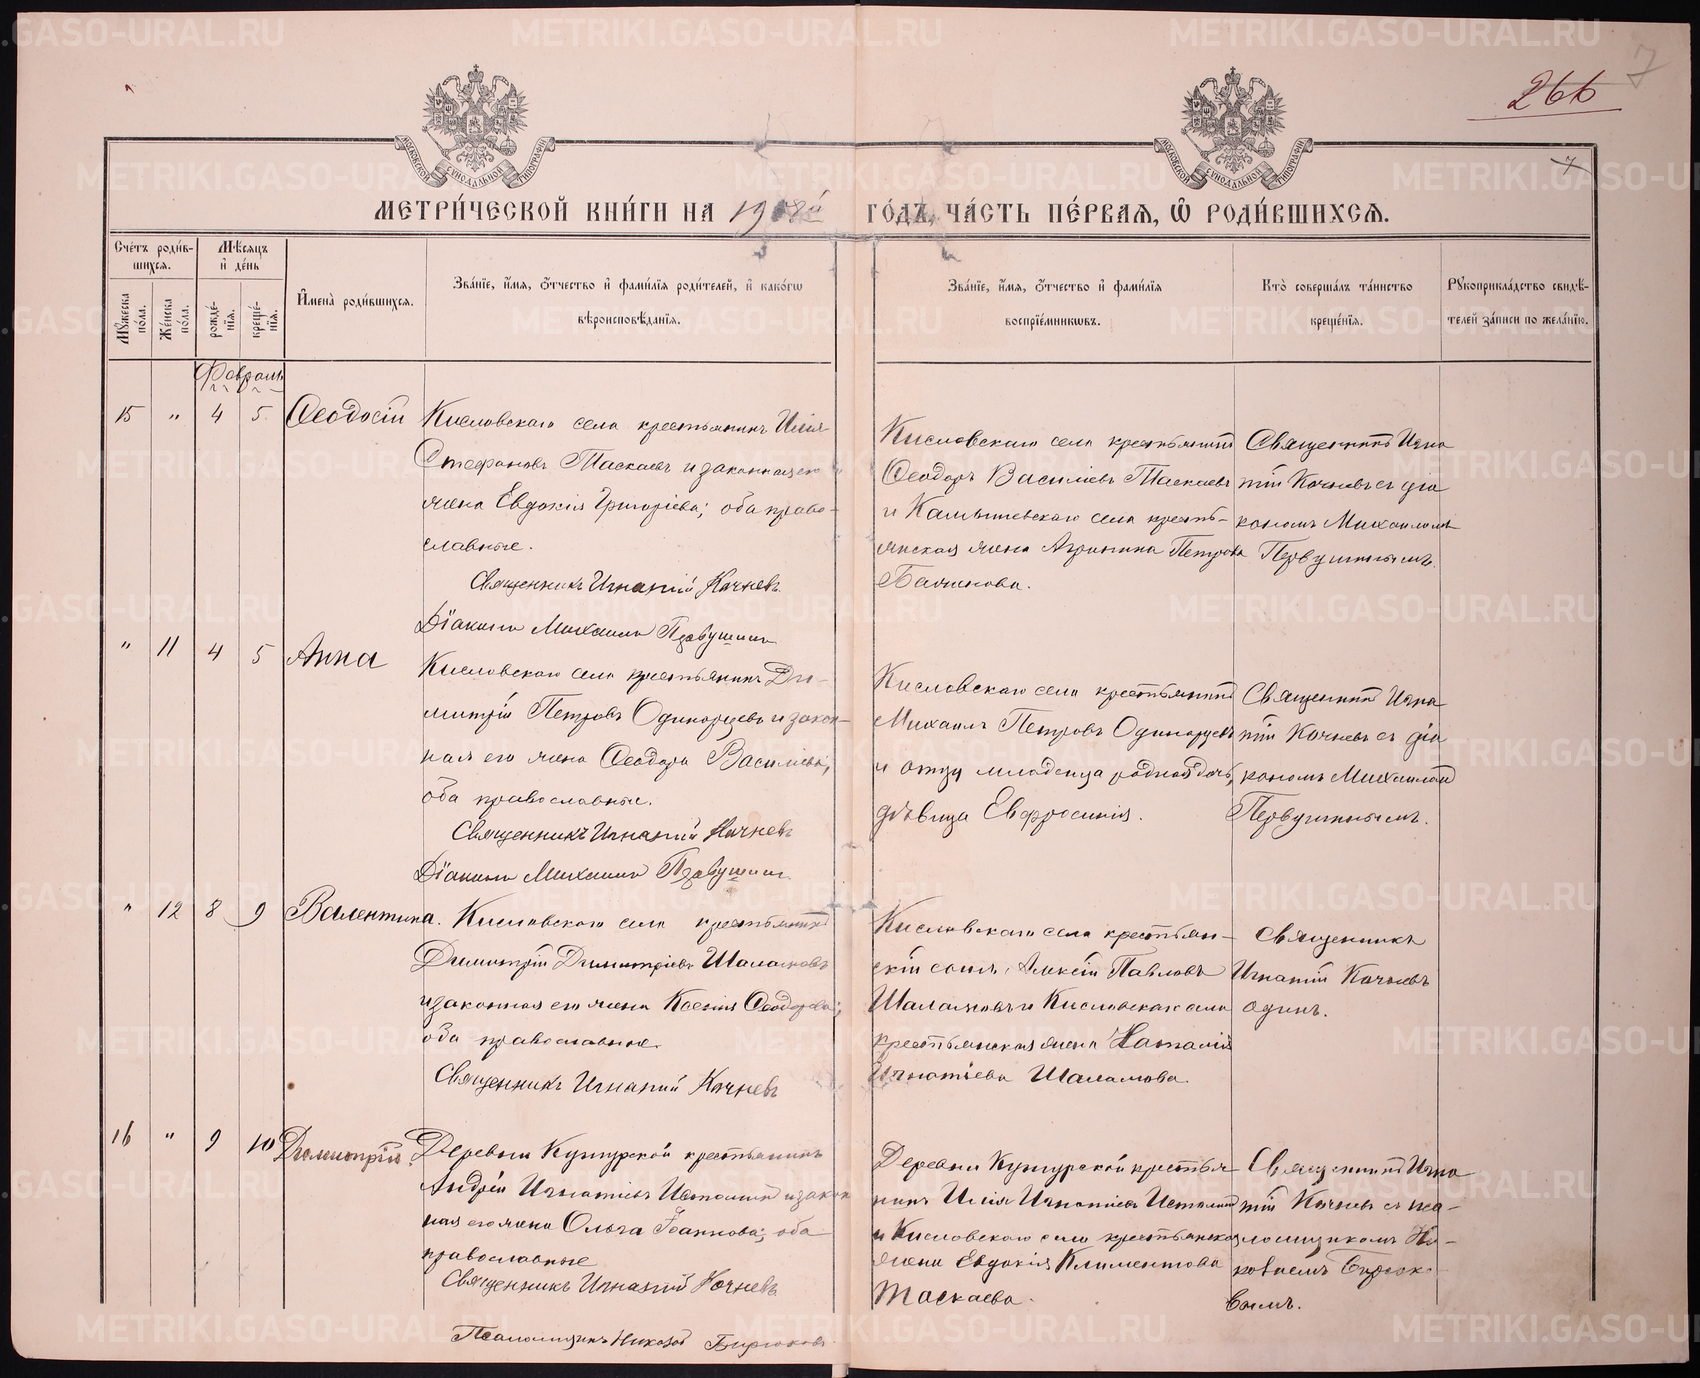 266
7
7
МОСКОВСКОЙ СУНОДАЛЬНОЙ ТИПОГРАФІИ
МОСКОВСКОЙ СУНОДАЛЬНОЙ ТИПОГРАФІИ
МЕТРИ́ЧЕСКОЙ КНИ́ГИ НА 1908й ГО́ДЪ, ЧА́СТЬ ПЕ́РВАѦ, Ѽ РОДИ́ВШИХСѦ.
Сче́тъ роди́в-
шихсѧ.
Мѣ́сѧцъ
и҆ де́нь
Мꙋ́жеска по́ла.
Же́нска по́ла.
рожде́-
нїѧ.
креще́-
нїѧ.
И҆мена̀ роди́вшихсѧ.
Зва́нїе, и҆́мѧ, ѻ҆́тчество и҆ фами́лїѧ роди́телей, и҆ како́гѡ
вѣроисповѣ́данїѧ.
Зва́нїе, и҆́мѧ, ѻ҆́тчество и҆ фами́лїѧ
воспрїе́мникѡвъ.
Кто̀ соверша́лъ та́инство
креще́нїѧ.
Рꙋкоприкла́дство свидѣ́-
телей за́писи по жела́нїю.
Февраль
15 " 4 5 Ѳеодосій
Кисловскаго села крестьянинъ Илія
Стефановъ Таскаевъ и законная его
жена Евдокія Григоріева; оба право-
славные.
Священникъ Игнатій Кочневъ
Діаконъ Михаилъ Первушинъ
Кисловскаго села крестьянинъ
Ѳеодоръ Василіевъ Таскаевъ
и Камышевскаго села кресть-
янская жена Агрипина Петрова
Бачинова.
Священникъ Игна
тій Кочневъ съ діа
кономъ Михаиломъ
Первушинымъ.
" 11 4 5 Анна
Кисловскаго села крестьянинъ Ди-
митрій Петровъ Одинарцевъ и закон-
ная его жена Ѳеодора Василіева;
оба православные.
Священникъ Игнатій Кочневъ
Діаконъ Михаилъ Первушинъ
Кисловскаго села крестьянинъ
Михаилъ Петровъ Одинарцевъ
и отцу младенца родная дочь,
дѣвица Евфросинія.
Священникъ Игна
тій Кочневъ съ діа
кономъ Михаиломъ
Первушинымъ.
" 12 8 9 Валентина.
Кисловскаго села крестьянинъ
Димитрій Димитріевъ Шаламовъ
и законная его жена Ксенія Ѳеодорова;
оба православные.
Священникъ Игнатій Кочневъ
Кисловскаго села крестьян-
скій сынъ, Алексій Павловъ
Шаламовъ и Кисловскаго села
крестьянская жена Наталія
Игнатіева Шаламова.
Священникъ
Игнатій Кочневъ
одинъ.
16 " 9 10 Димитрій.
Деревни Кушурской крестьянинъ
Андрей Игнатіевъ и закон
ная его жена Ольга Іоаннова; оба
православные
Священникъ Игнатій Кочневъ
Псаломщикъ Николай Бирюковъ
Деревни Кушурской крестья
нинъ Илія Игнатіевъ
и Кисловскаго села крестьянская
жена Евдокія Климентова
Таскаева.
Священникъ Игна
тій Кочневъ съ пса-
ломщикомъ Ни-
колаемъ Бирюко-
вымъ.
METRIKI.GASO-URAL.RU